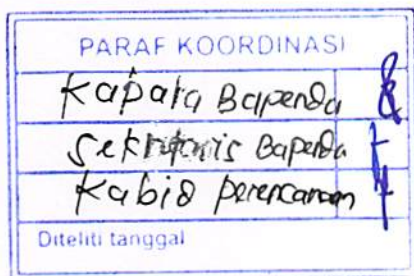 PARAF KOORDINASI
Kapala Bapenda
Sekretaris Bapenda
Kabid perencanaan
Diteliti tanggal